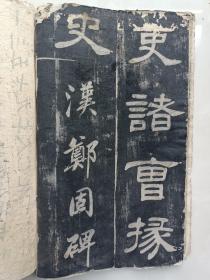 吏諸曹掾
史
漢鄭固碑